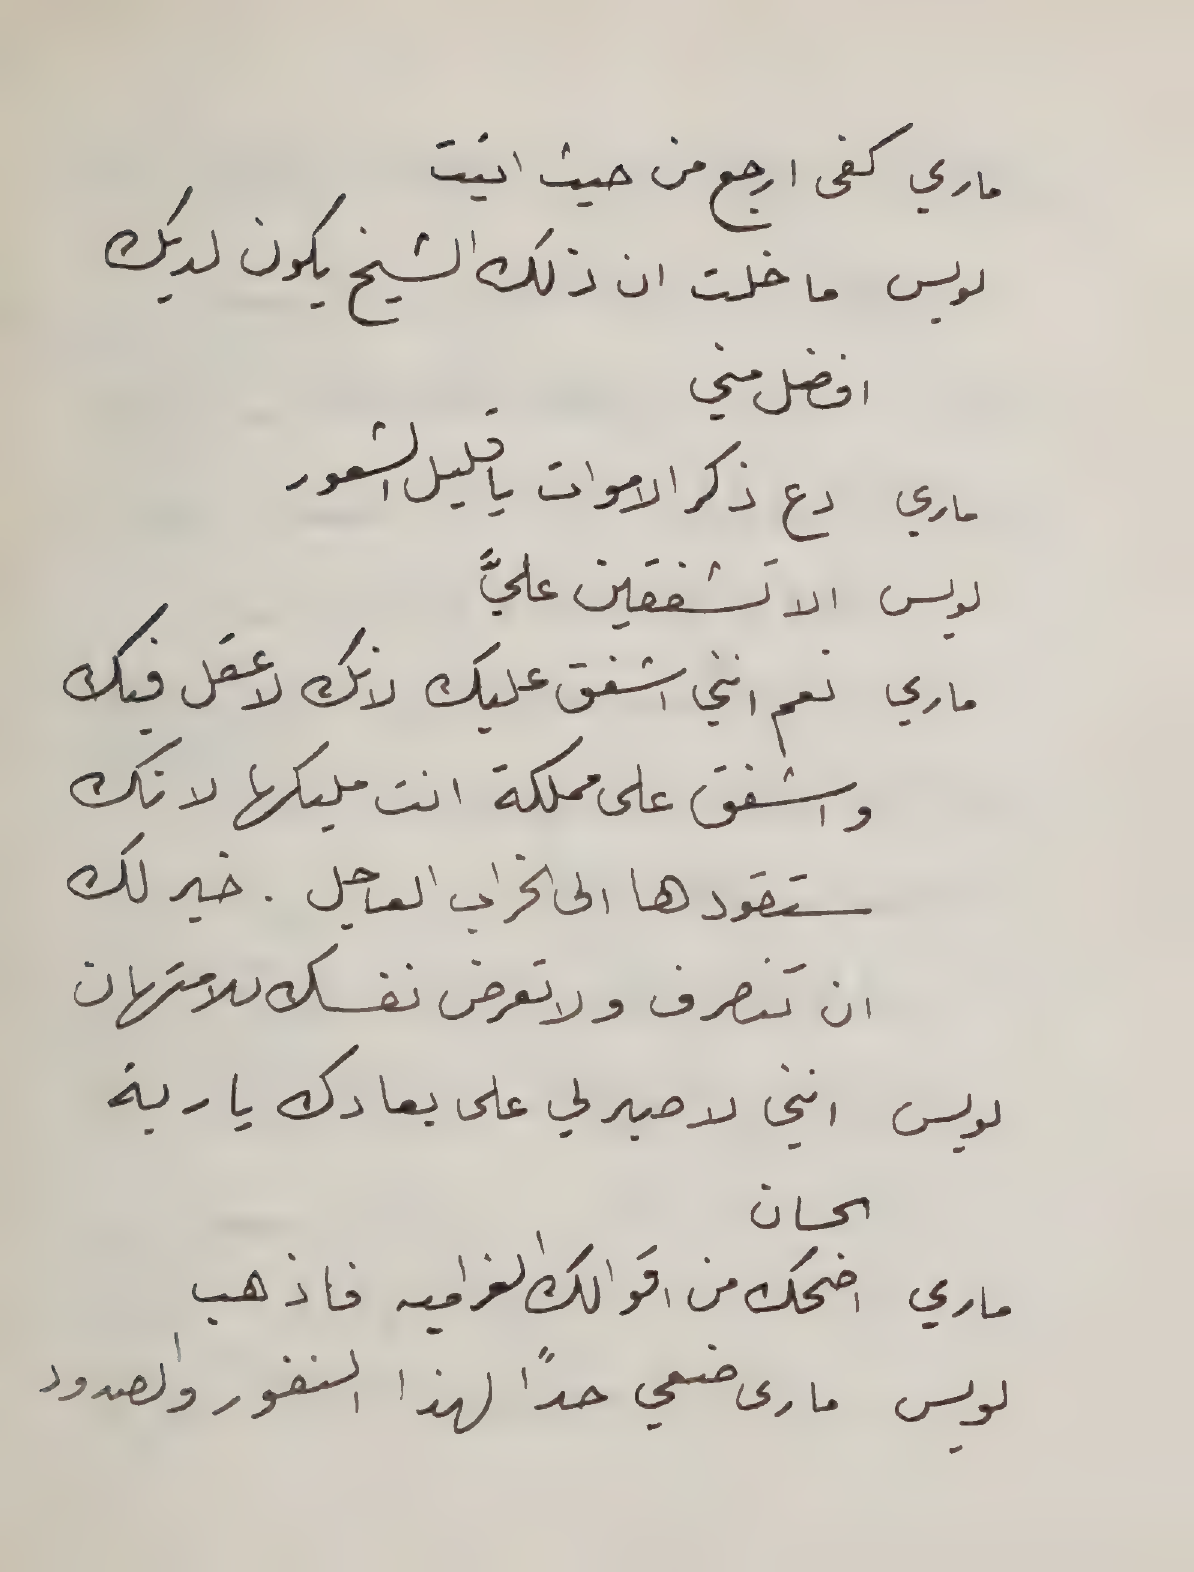 ماري كفى ارجع من حيث اتيت
لويس ما خلت ان ذلك الشيخ يكون لديك
افضل مني
ماري دع ذكر الاموات يا قليل الشعور
لويس الا تشفقين عليَّ
ماري نعم انني اشفق عليك لانك لا عقل فيك
واشفق على مملكة انت مليكها لانك
ستقودها الى الخراب العاجل . خير لك
ان تنصرف ولا تعرض نفسك للامتهان
لويس انني لا صبر لي على بعادك يا ربة
الحسان
ماري اضحك من اقوالك الغراميه فاذهب
لويس مارى ضعي حدًا لهذا النفور والصدود